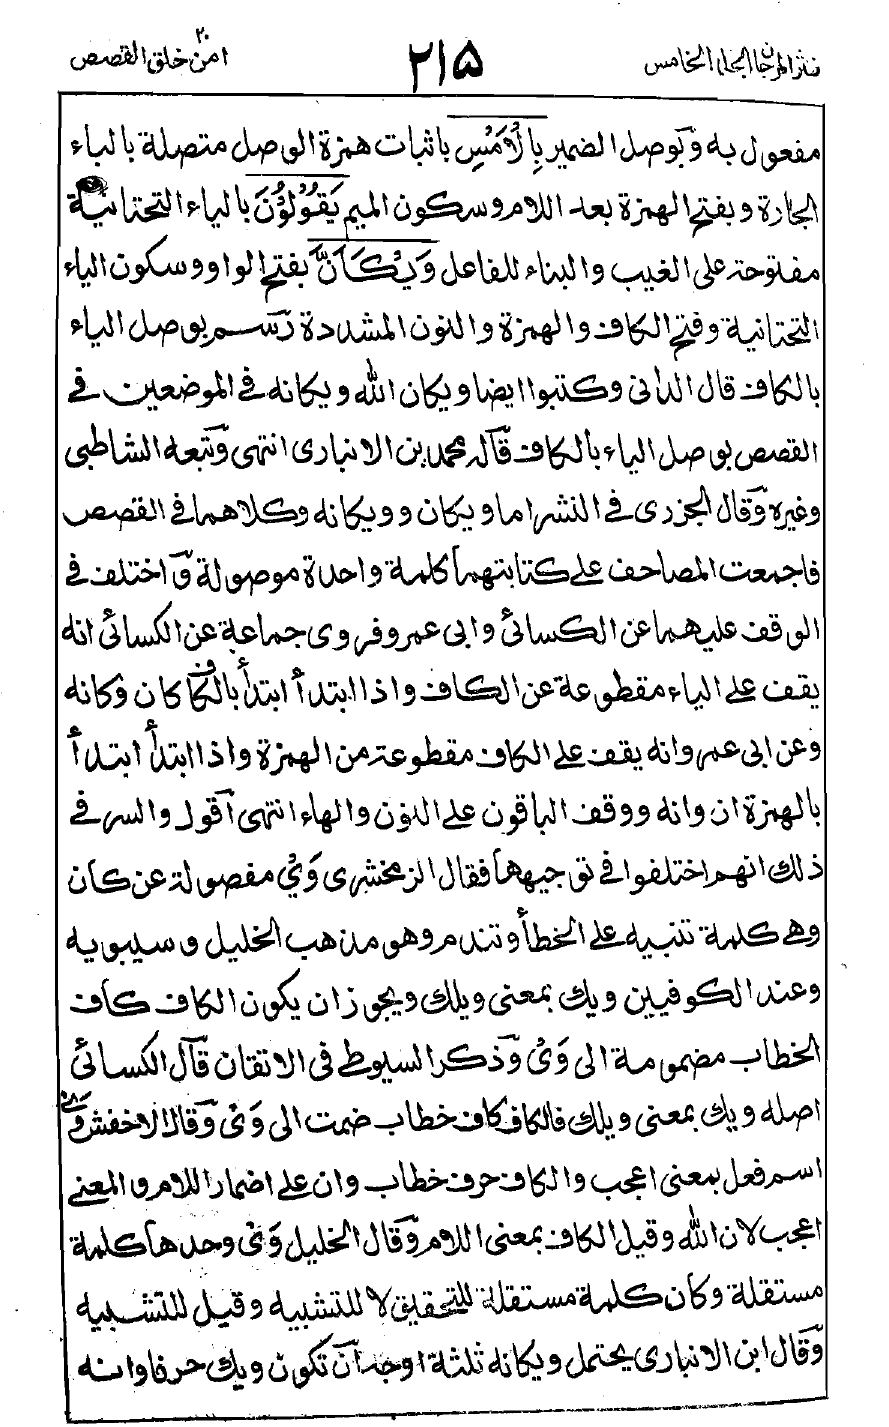 نثر المرجان الجلد الخامس
۲۱۵
امن خلق ۲۰ القصص
مفعول به وبوصل الضمير بِالْاَمْسِ باثبات همزة الوصل متصلة بالباء
الجارة وبفتح الهمزة بعد اللام وسكون الميم يَقُوْلُوْنَ بالياء التحتانية
مفتوحة على الغيب والبناء للفاعل وَيْكَاَنَّ بفتح الواو وسكون الياء
التحتانية وفتح الكاف والهمزة والنون المشددة رسم بوصل الياء
بالكاف قال الدانى وكتبوا ايضا ويكان الله ويكانه فى الموضعين فى
القصص بوصل الياء بالكاف قاله محمد بن الانبارى انتهى وتبعه الشاطبى
وغيره وقال الجزرى فى النشر اما ويكان وويكانه وكلاهما فى القصص
فاجمعت المصاحف على كتابتهما كلمة واحدة موصولة واختلف فى
الوقف عليهما عن الكسائى وابى عمرو فروى جماعة عن الكسائى انه
يقف على الياء مقطوعة عن الكاف واذا ابتدأ ابتدأ بالكاف كان وكانه
وعن ابى عمرو انه يقف على الكاف مقطوعة من الهمزة واذا ابتدأ ابتدأ
بالهمزة ان وانه ووقف الباقون على النون والهاء انتهى اقول والسر فى
ذلك انهم اختلفوا فى توجيهها فقال الزمخشرى وَىْ مفصولة عن كان
وهى كلمة تنبيه على الخطأ وتندم وهو مذهب الخليل وسيبويه
وعند الكوفيين ويك بمعنى ويلك ويجوز ان يكون الكاف كاف
الخطاب مضمومة الى وَىْ وذكر السيوطى فى الاتقان قال الكسائى
اصله ويك بمعنى ويلك فالكاف كاف خطاب ضمت الى وَىْ وقال الاخفش وى
اسم فعل بمعنى اعجب والكاف حرف خطاب وان على اضمار اللام والمعنى
اعجب لان الله وقيل الكاف بمعنى اللام وقال الخليل وَىْ وحدها كلمة
مستقلة وكان كلمة مستقلة للتحقيق لا للتشبيه وقيل للتشبيه
وقال ابن الانبارى يحتمل ويكانه ثلثة اوجه ان تكون ويك حرفا وانه